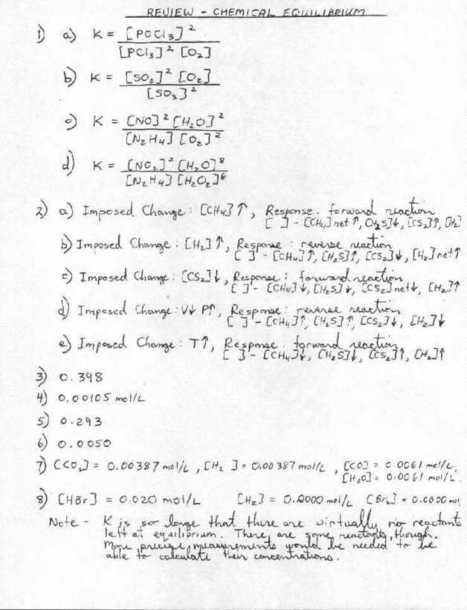 REVIEW - CHEMICAL EQUILIBRIUM
1) a) K = [POCl₃]² / [PCl₃]² [O₂]
b) K = [SO₂]² [O₂] / [SO₃]²
c) K = [NO]² [H₂O]² / [N₂H₄] [O₂]²
d) K = [NO₂]² [H₂O]⁸ / [N₂H₄] [H₂O₂]⁶
2) a) Imposed Change: [CH₄]↑, Response: forward reaction
[ ] - [CH₄] net↑, [H₂S]↓, [CS₂]↑, [H₂]
b) Imposed Change: [H₂]↑, Response: reverse reaction
[ ] - [CH₄]↑, [H₂S]↑, [CS₂]↓, [H₂] net↑
c) Imposed Change: [CS₂]↓, Response: forward reaction
[ ] - [CH₄]↓, [H₂S]↓, [CS₂] net↓, [H₂]↑
d) Imposed Change: V↓ P↑, Response: reverse reaction
[ ] - [CH₄]↑, [H₂S]↑, [CS₂]↓, [H₂]↓
e) Imposed Change: T↑, Response: forward reaction
[ ] - [CH₄]↓, [H₂S]↓, [CS₂]↑, [H₂]↑
3) 0.398
4) 0.00105 mol/L
5) 0.293
6) 0.0050
7) [CO₂] = 0.00387 mol/L, [H₂ ] = 0.00387 mol/L, [CO] = 0.0061 mol/L,
[H₂O] = 0.0061 mol/L
8) [HBr] = 0.020 mol/L [H₂] = 0.0000 mol/L [Br₂] = 0.0000 mol
Note - K is so large that there are virtually no reactants
left at equilibrium. There are some reactants, though.
More precise measurements would be needed to be
able to calculate their concentrations.